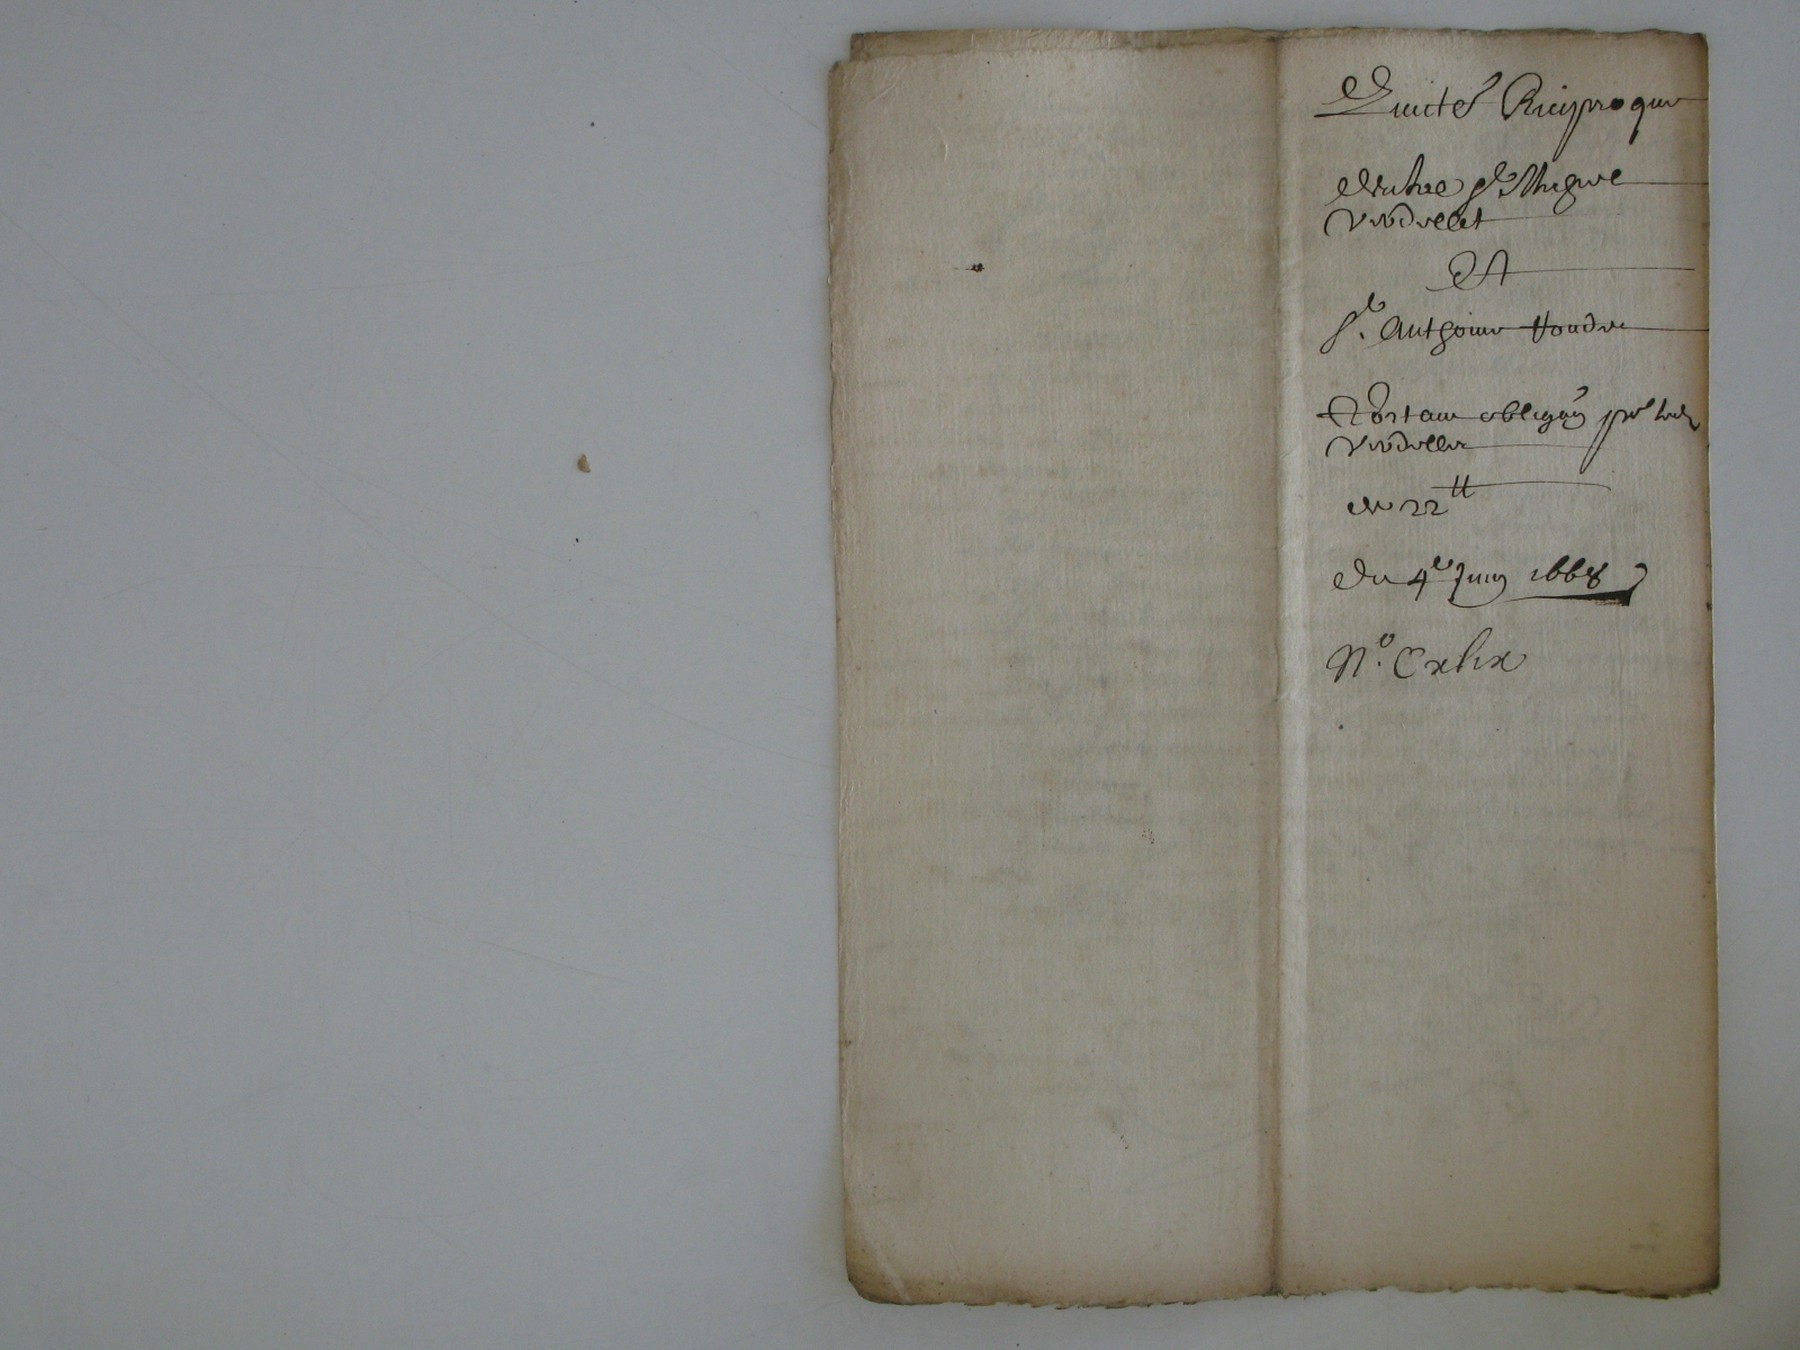 Quictes Reciproque
Entre Sr. Hugue
Verdellet
Et
Sr. Anthoine Houdre
Portant obligaõn par led
Verdellet
de 22tt
du 4e Juin 1668
No. Cxlix